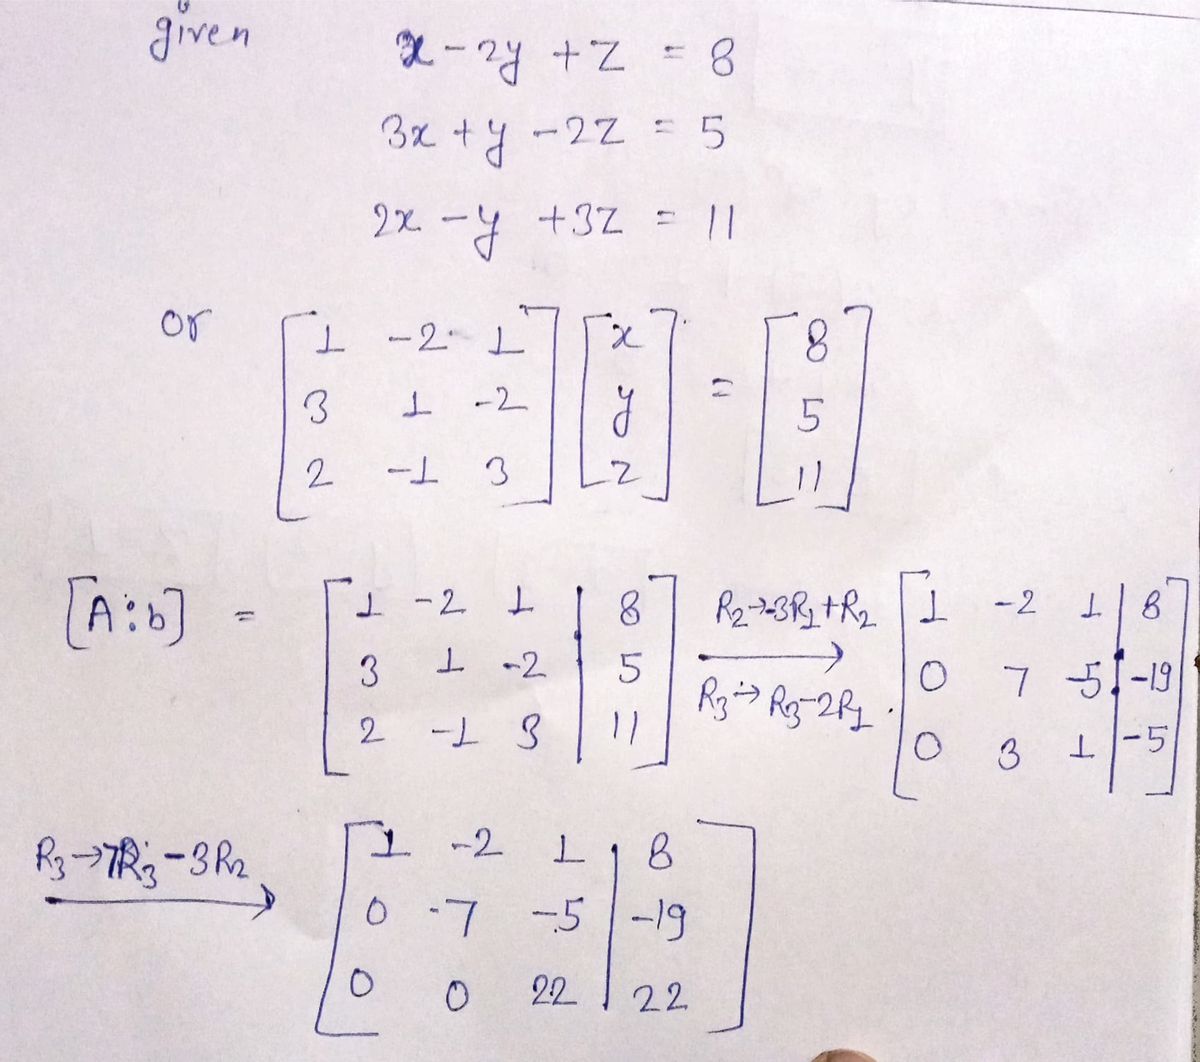 given
x - 2y + z = 8
3x + y - 2z = 5
2x - y + 3z = 11
or [1 -2 1; 3 1 -2; 2 -1 3] [x; y; z] = [8; 5; 11]
[A:b] = [1 -2 1 | 8; 3 1 -2 | 5; 2 -1 3 | 11] R2→-3R1+R2 R3→R3-2R1 [1 -2 1 | 8; 0 7 -5 | -19; 0 3 1 | -5]
R3→7R3-3R2 [1 -2 1 | 8; 0 -7 -5 | -19; 0 0 22 | 22]